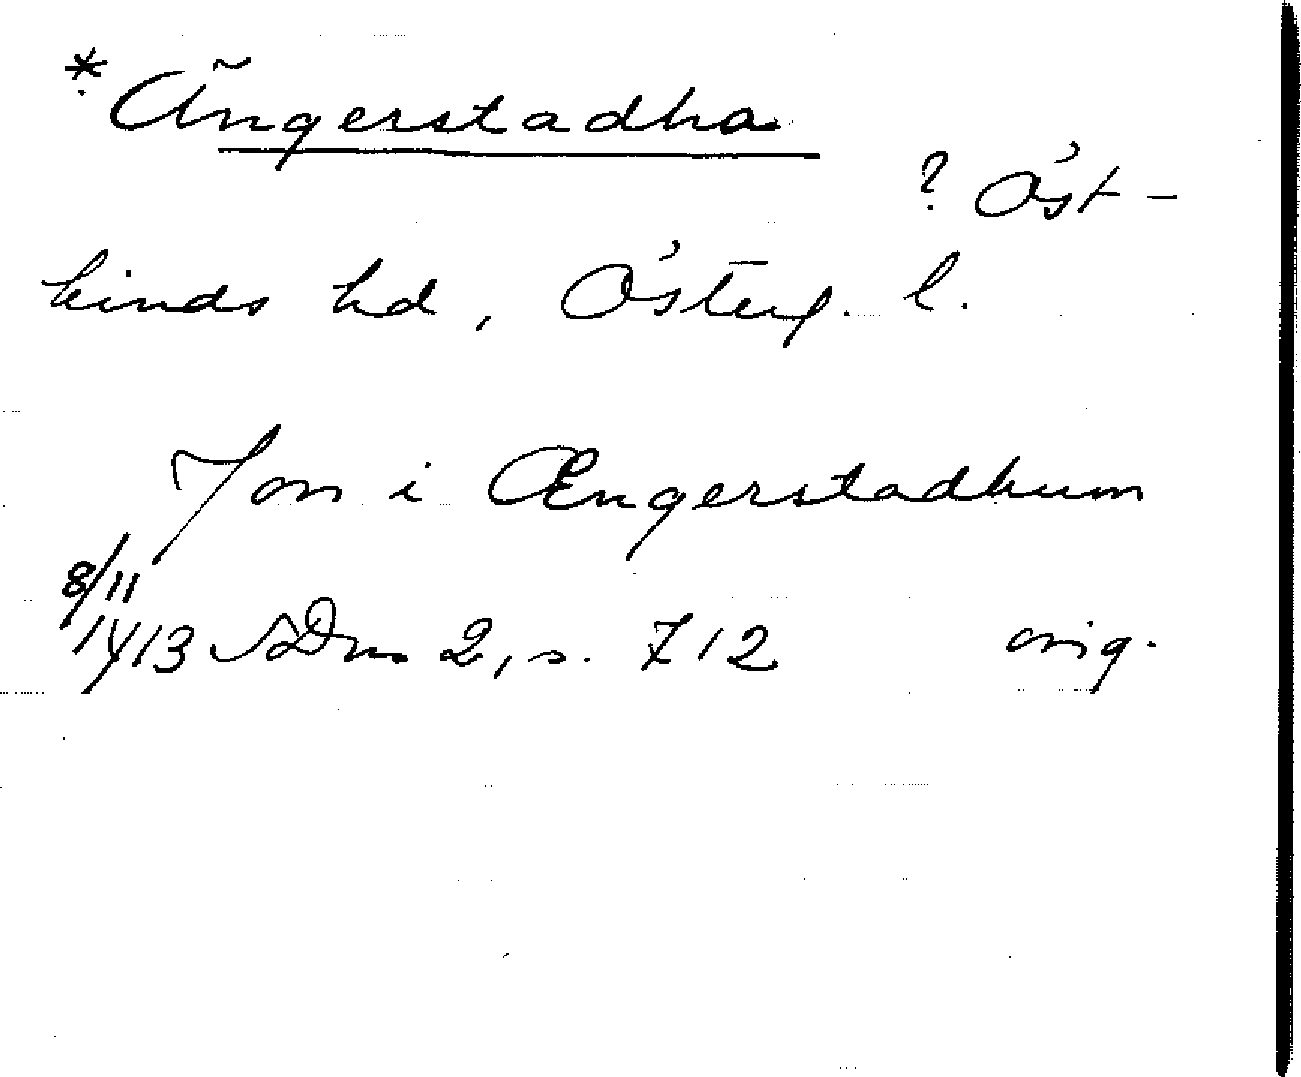 * Ängerstadha
? Öst-
kinds hd, Österg. l.
Jon i Ængerstadhum
8/11
1413 SDns 2, s. 712 orig.